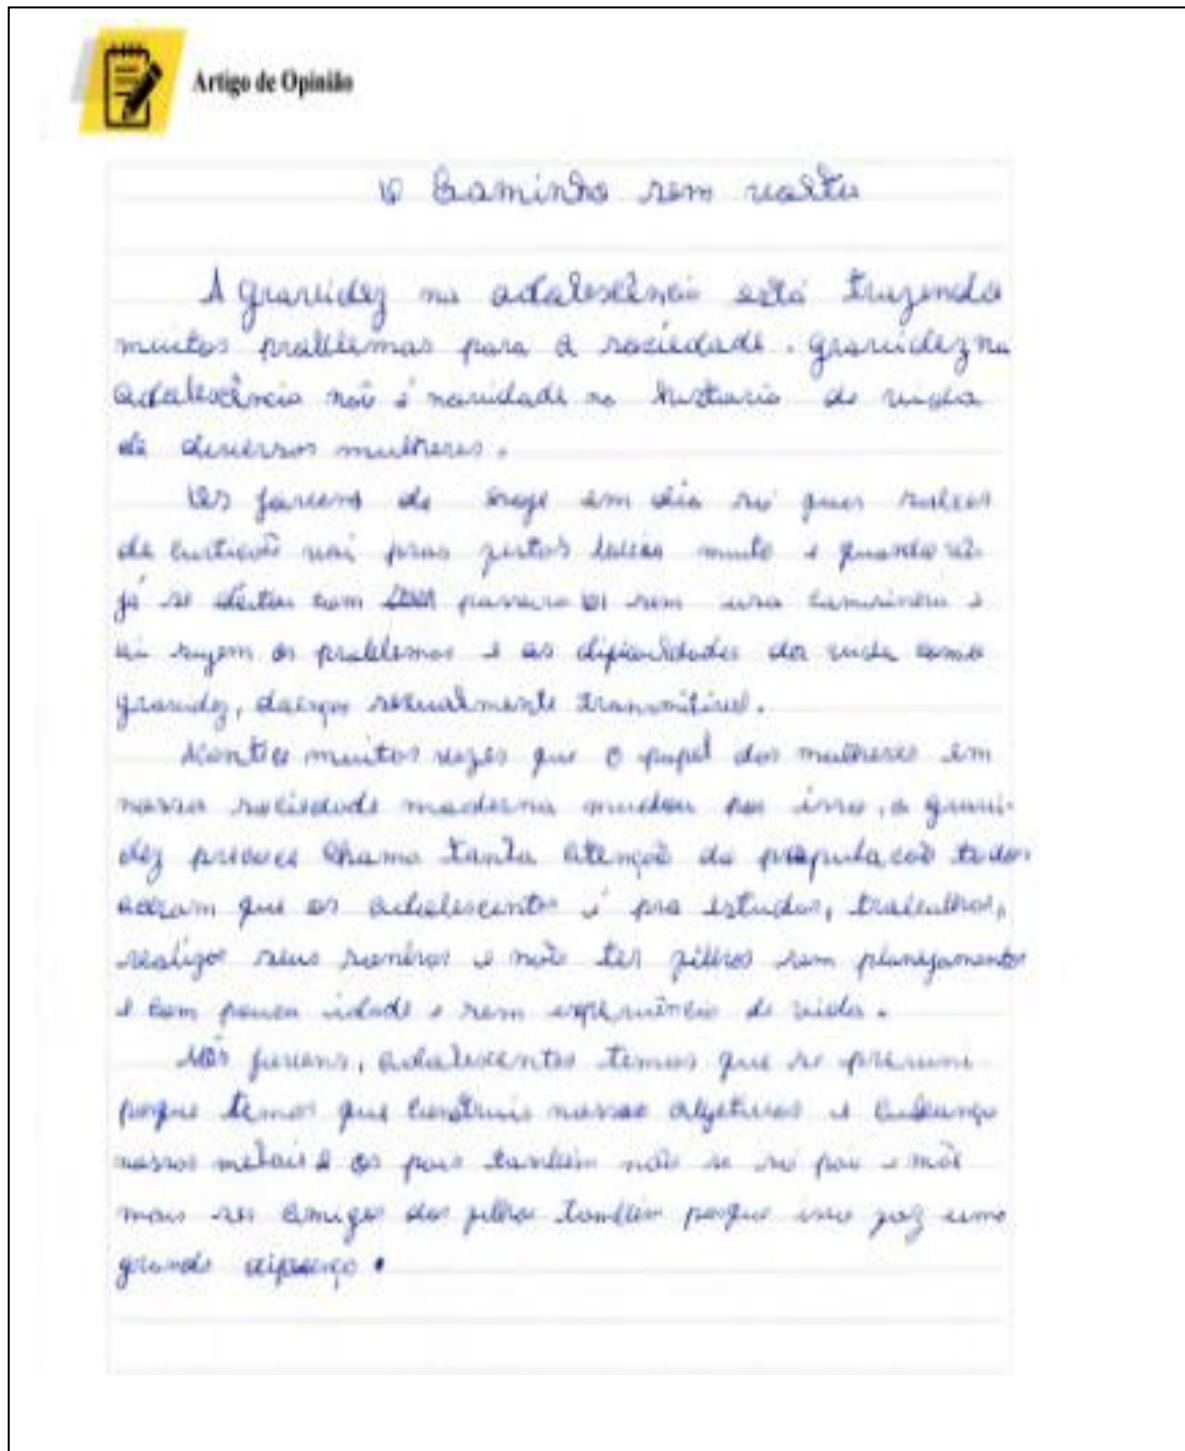 Artigo de Opinião
O Caminho sem volta
A gravidez na adolescência está trazendo
muitos problemas para a sociedade. gravidez na
adolescência não é novidade na historia de vida
de diversos mulheres.
Os jovens de hoje em dia só quer saber
de curtição vai pras festas bebe muito e quando vê
já se deitou com parceiro sem usa camisinha e
ai sujem os problemas e as dificuldades da vida como
gravidez, doenças sexualmente transmitivel.
Acontece muitas vezes que o papel das mulheres em
nossa sociedade moderna mudou por isso, a gravi-
dez precoce chama tanta atenção da população todos
acham que os adolescentes é pra estudar, trabalhar,
realizar seus sonhos e não ter filhos sem planejamento
e com pouca idade e sem experiência de vida.
Nós jovens, adolescentes temos que se prevuni
porque temos que construir nossos objetivos e
nossas metais e os pais também não se só pai e mãe
mais ser amigos dos filhos também porque isso faz uma
grande